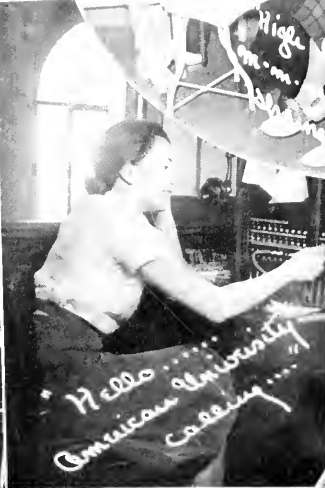 High
m.m.
"Hello.....
American University
calling...."